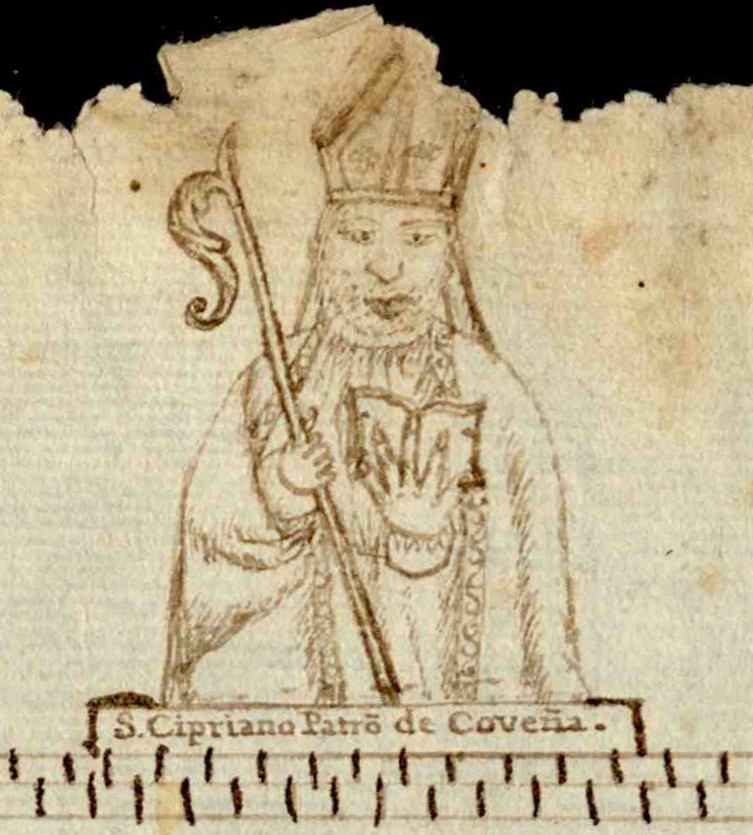 S. Cipriano Patrõ de Coveña.